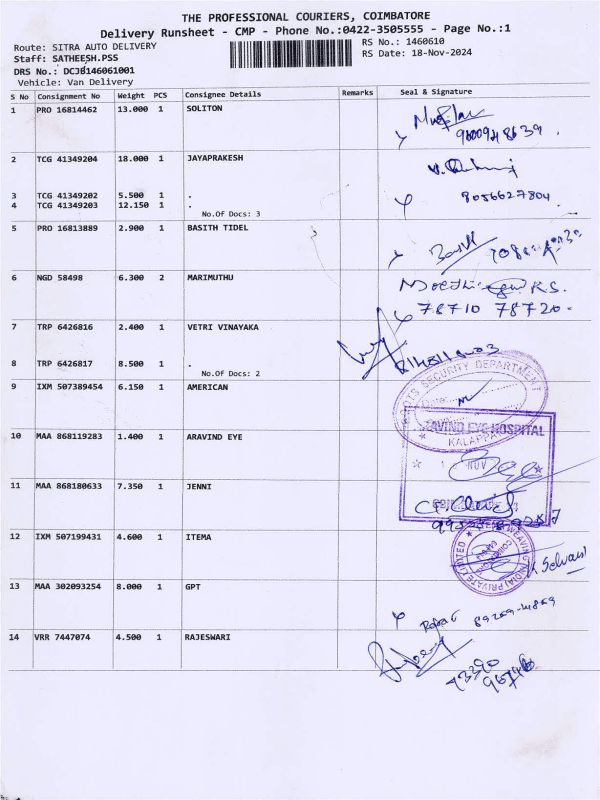 THE PROFESSIONAL COURIERS, COIMBATORE
Delivery Runsheet - CMP - Phone No.:0422-3505555 - Page No.:1
Route: SITRA AUTO DELIVERY
RS No.: 1460610
Staff: SATHEESH.PSS
RS Date: 18-Nov-2024
DRS No.: DCJB146061001
Vehicle: Van Delivery
S No Consignment No Weight PCS Consignee Details Remarks Seal & Signature
1 PRO 16814462 13.000 1 SOLITON
2 TCG 41349204 18.000 1 JAYAPRAKESH
3 TCG 41349202 5.500 1 .
8056627804
4 TCG 41349203 12.150 1 .
No.Of Docs: 3
5 PRO 16813889 2.900 1 BASITH TIDEL
6 NGD 58498 6.300 2 MARIMUTHU
K.S.
78710 78720
7 TRP 6426816 2.400 1 VETRI VINAYAKA
8 TRP 6426817 8.500 1 .
No.Of Docs: 2
SECURITY DEPARTMENT
Date
KALAPPA
9 IXM 507389454 6.150 1 AMERICAN
10 MAA 868119283 1.400 1 ARAVIND EYE
EYE HOSPITAL
NOV
11 MAA 868180633 7.350 1 JENNI
12 IXM 507199431 4.600 1 ITEMA
WEAVING (INDIA) PRIVATE LIMITED
K. Selvaraj
13 MAA 302093254 8.000 1 GPT
14 VRR 7447074 4.500 1 RAJESWARI